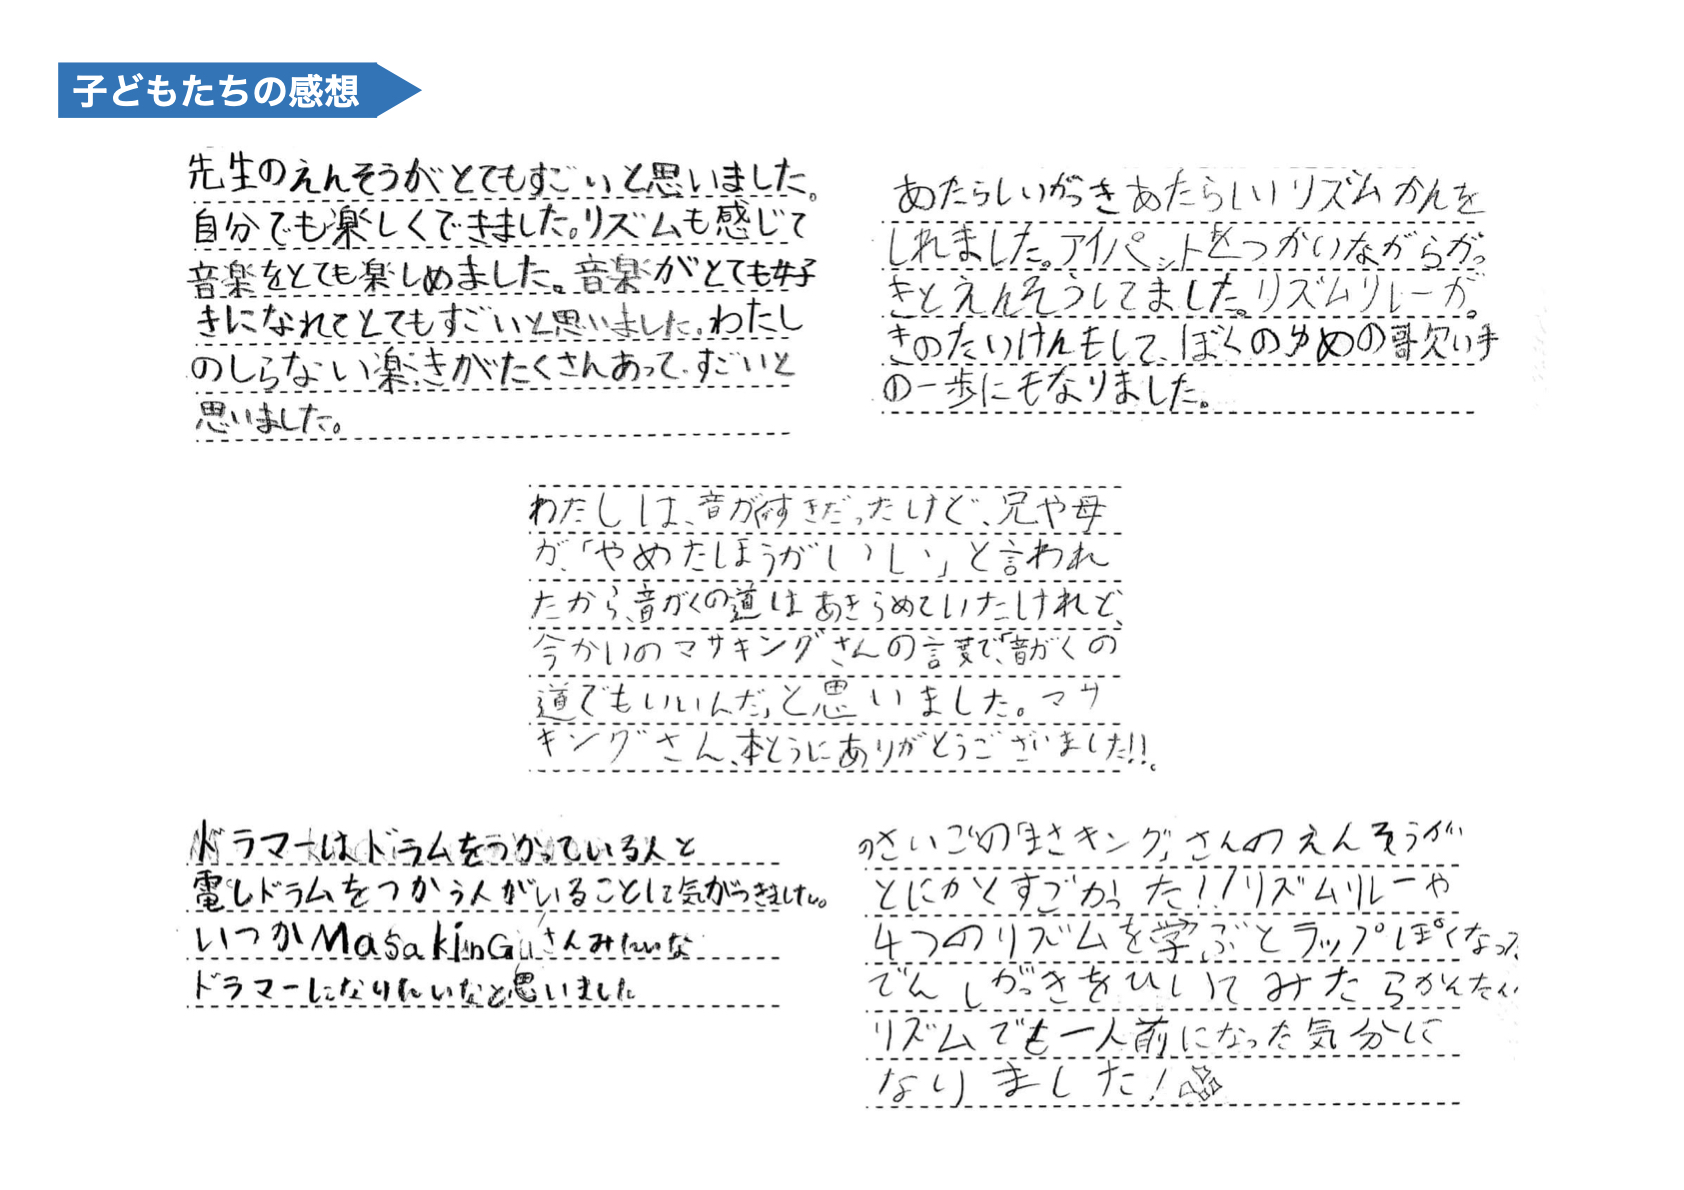 子どもたちの感想
先生のえんそうがとてもすごいと思いました。
自分でも楽しくできました。リズムも感じて
音楽をとても楽しめました。音楽がとても好
きになれてとてもすごいと思いました。わたし
のしらない楽きがたくさんあって、すごいと
思いました。
あたらしいがっきあたらしいリズムかんを
しれました。アイパットをつかいながらがっ
きとえんそうしてました。リズムリレーがっ
きのたいけんもして、ぼくのゆめの歌い手
の一歩にもなりました。
わたしは、音がくすきだったけど、兄や母
が、「やめたほうがいい」と言われ
たから、音がくの道はあきらめていたけれど、
今かいのマサキングさんの言葉で、「音がくの
道でもいいんだ」と思いました。マサ
キングさん、本とうにありがとうございました!!。
ドラマーはドラムをつかっている人と
電しドラムをつかう人がいることして気がつきました。
いつかMasakinGuさんみたいな
ドラマーになりたいなと思いました
さいごの「まさキング」さんのえんそうが
とにかくすごかった!!リズムリレーや
4つのリズムを学ぶとラップぽくなった
でんしがっきをひいてみたらかんたん
リズムでも一人前になった気分に
なりました!